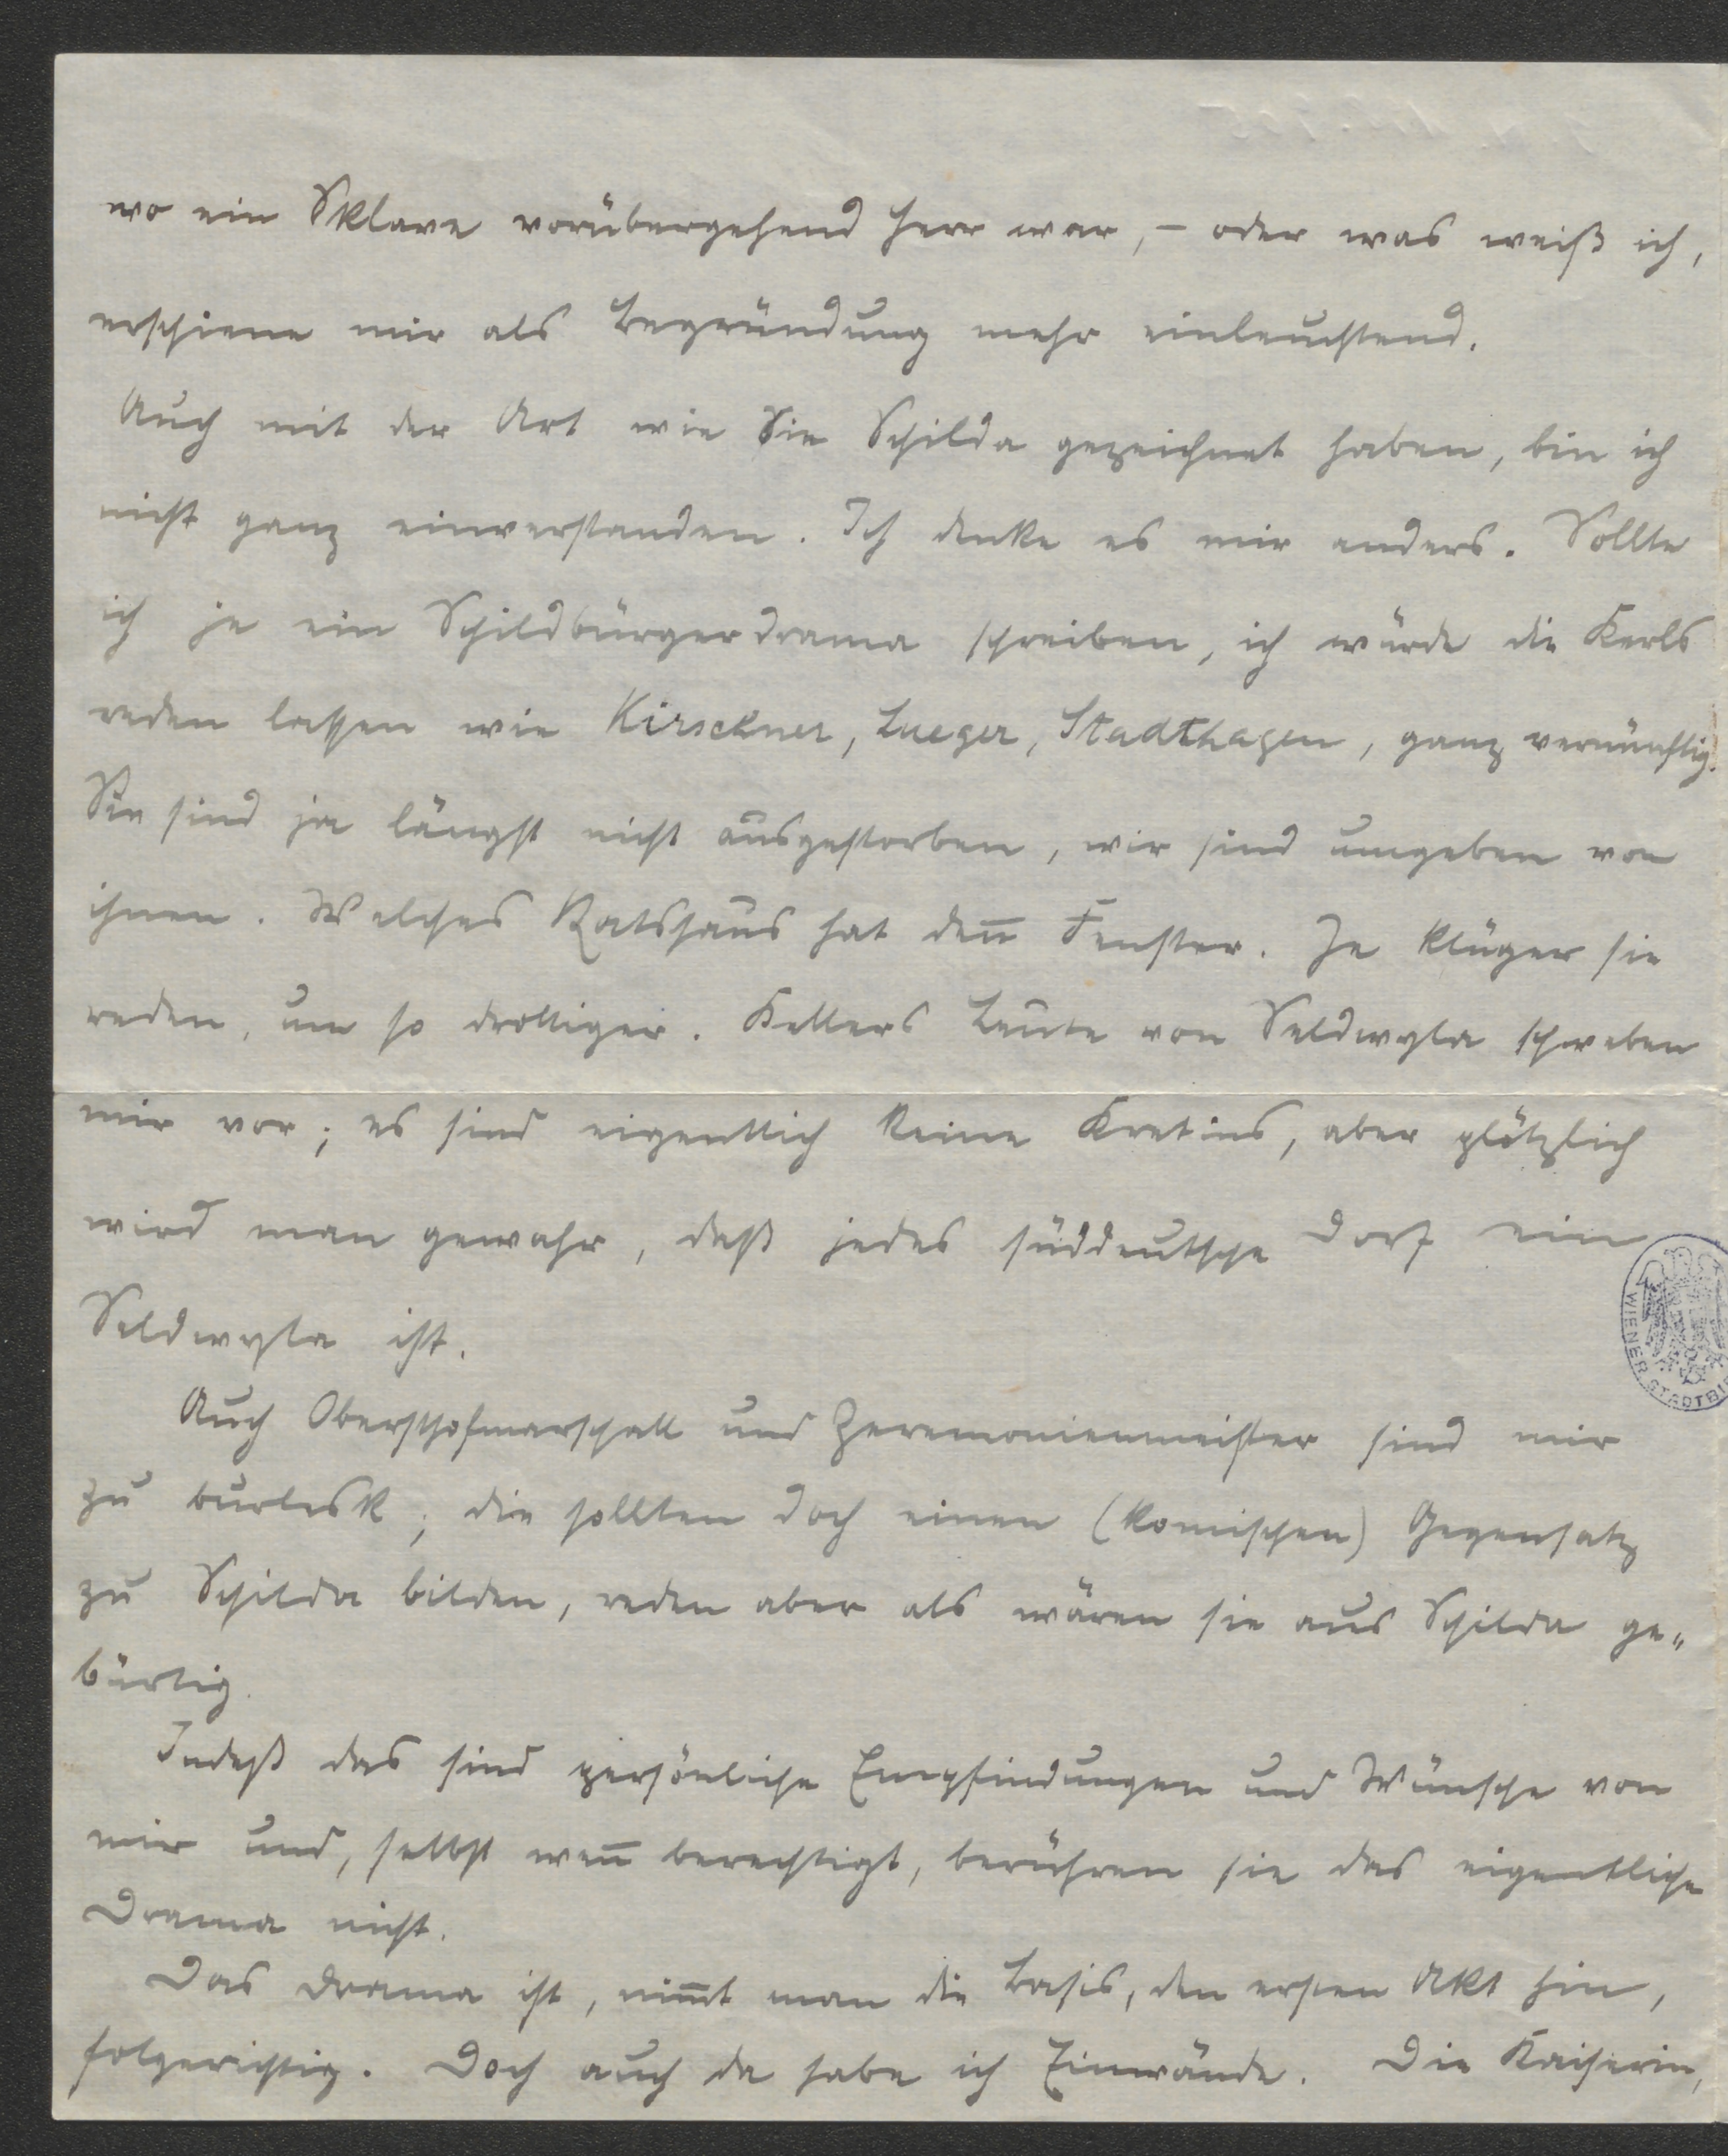 wo ein Sklave vorübergehend Herr war, – oder was weiß ich,
erschiene mir als Begründung mehr einleuchtend.
Auch mit der Art wie Sie Schilda gezeichnet haben, bin ich
nicht ganz einverstanden. Ich denke es mir anders. Sollte
ich je ein Schildbürgerdrama schreiben, ich würde die Kerls
reden lassen wie Kirschner, Lueger, Stadthagen, ganz vernünftig.
Sie sind ja längst nicht ausgestorben, wir sind umgeben von
ihnen. Welches Ratshaus hat den̄ Fenster. Je klüger sie
reden, um so drolliger. Kellers Leute von Seldwyla schweben
mir vor; es sind eigentlich keine Kretins, aber plötzlich
wird man gewahr, daß jedes süddeutsche Dorf ein
Seldwyla ist.
Auch Obersthofmarschall und Zeremonienmeister sind mir
zu burlesk; die sollten doch einen (komischen) Gegensatz
zu Schilda bilden, reden aber als wären sie aus Schilda ge"
bürtig.
Indeß das sind persönliche Empfindungen und Wünsche von
mir und, selbst wen̄ berechtigt, berühren sie das eigentliche
Drama nicht.
Das Drama ist, nim̄t man die Basis, den ersten Akt hin,
folgerichtig. Doch auch da habe ich Einwände. Die Kaiserin,
WIENER STADTBI